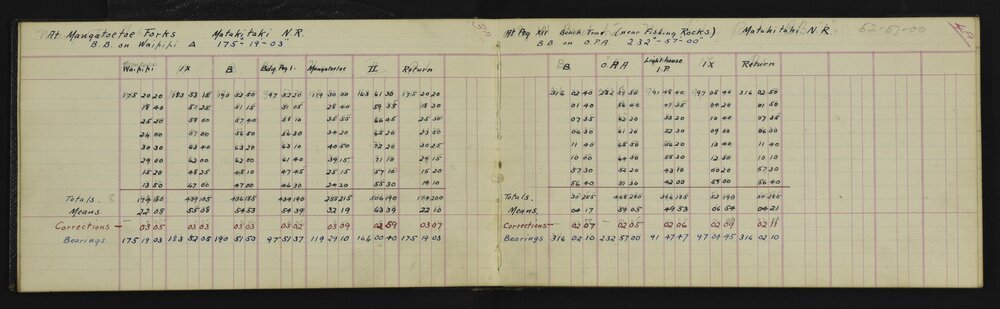 At Mangatoetoe Forks Matakitaki N.R.
B.B. on Waipipi △ 175-19-03
Waipipi IX B. Bdg. Peg 1. Mangatoetoe II Return
175 20 20 183 53 15 190 52 50 97 52 20 119 30 00 163 61 30 175 20 20
18 40 51 25 51 15 51 05 28 40 59 35 18 30
25 20 58 00 57 40 58 10 35 50 66 45 25 30
24 00 57 00 56 50 56 30 34 20 65 20 23 50
30 30 63 40 63 20 63 10 40 50 72 20 30 25
29 00 62 00 62 00 61 40 39 15 71 10 29 15
15 20 48 25 48 10 47 45 25 15 57 10 15 20
13 50 47 00 47 00 46 30 24 20 55 30 14 10
Totals. 174 180 439 105 436 185 434 190 255 215 506 190 174 200
Means 22 08 55 08 54 53 54 39 32 19 63 39 22 10
Corrections - 03 05 03 03 03 03 03 02 03 09 02 59 03 07
Bearings 175 19 03 183 52 05 190 51 50 97 51 37 119 29 10 164 00 40 175 19 03
At Peg XII Beach Trav. (near Fishing Rocks) Matakitaki N.R. 52-57-00
B.B. on O.P.A 232°-57-00"
B. O.P.A Lighthouse I.P. IX Return
316 02 40 232 59 50 91 48 40 97 05 40 316 02 50
01 40 56 40 47 35 04 20 01 50
07 35 62 20 53 20 10 40 07 35
06 30 61 20 52 30 09 00 06 30
11 40 65 50 56 20 13 40 11 40
10 00 64 50 55 30 12 50 10 10
57 30 52 20 43 10 00 20 57 30
56 40 51 30 42 00 59 00 56 40
Totals. 30 255 468 280 396 185 52 190 30 285
Means. 04 17 59 05 49 53 06 54 04 21
Corrections - 02 07 02 05 02 06 02 09 02 11
Bearings 316 02 10 232 57 00 91 47 47 97 04 45 316 02 10